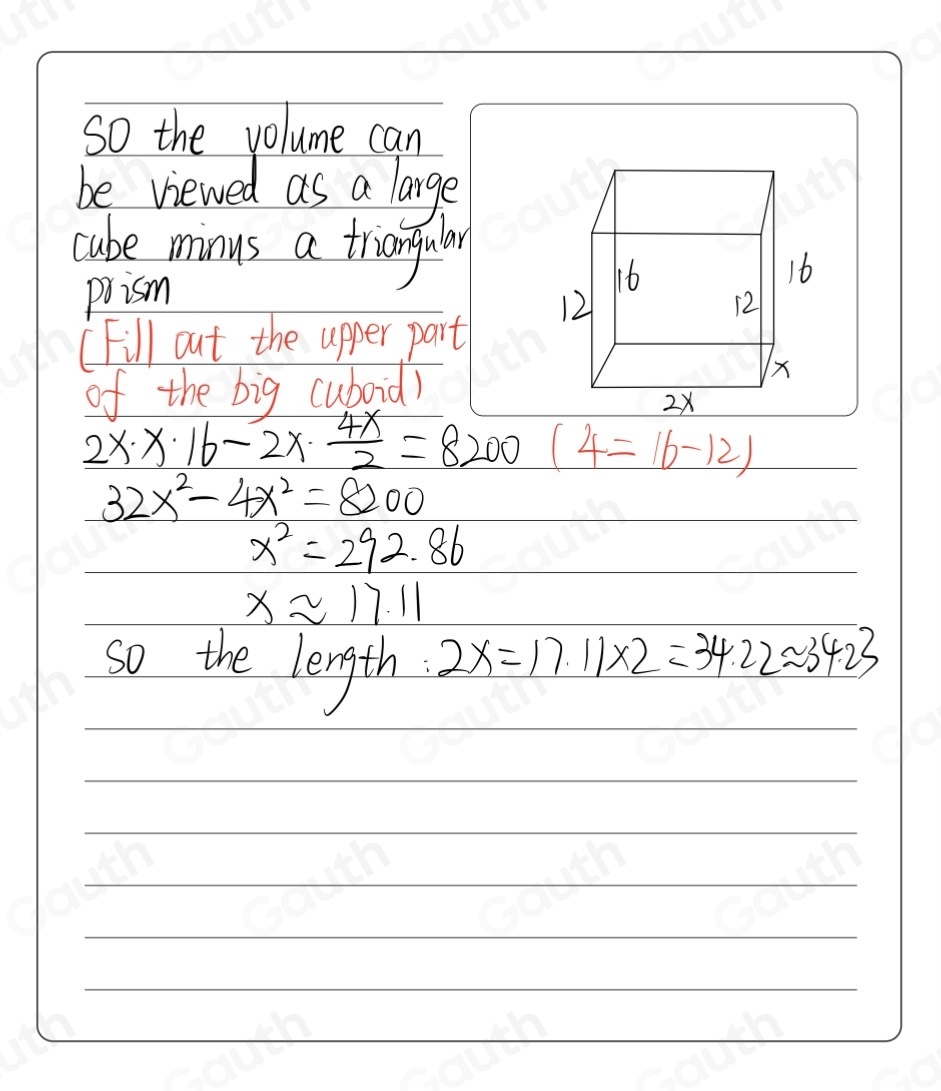 SO the volume can
be viewed as a large
cube minus a triangular
prism
(Fill out the upper part
of the big cuboid)
12 16 12 16
x
2x
2x·x·16-2x·\frac{4x}{2}=8200 (4=16-12)
32x²-4x²=8200
x²=292.86
x≈17.11
so the length:2x=17.11×2=34.22≈34.23
Gauth